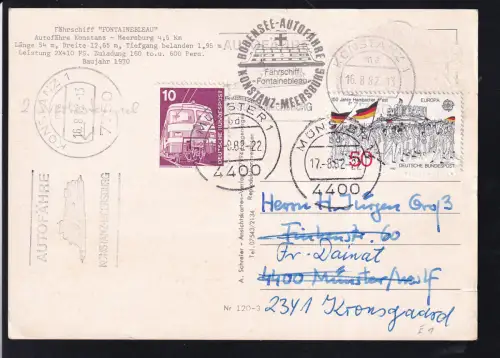 Fährschiff "FONTAINEBLEAU"
Autofähre Konstanz - Meersburg 4,5 Km
Länge 54 m, Breite 12,65 m, Tiefgang beladen 1,95 m
Leistung 2X40 PS. Zuladung 160 to u. 600 Pers.
Baujahr 1970
BODENSEE-AUTOFÄHRE
KONSTANZ-MEERSBURG
Fährschiff
-Fontainebleau-
KONSTANZ 1
16.8.82
KONSTANZ 1
16.8.82
AUTOFÄHRE
KONSTANZ-MEERSBURG
10
DEUTSCHE BUNDESPOST
MÜNSTER 1
.8.82-22
4400
MÜNSTER 1
17.-8.82-22
4400
150 Jahre Hambacher Fest
EUROPA
50
DEUTSCHE BUNDESPOST
A. Schreier - Ansichtskarten-Verlag
Tel. 07543/2134
Nr 120-3
Herrn H. Jürgen Groß
60
Pr. Dainat
4400 Münster/Westf
2341 Kronsgaard